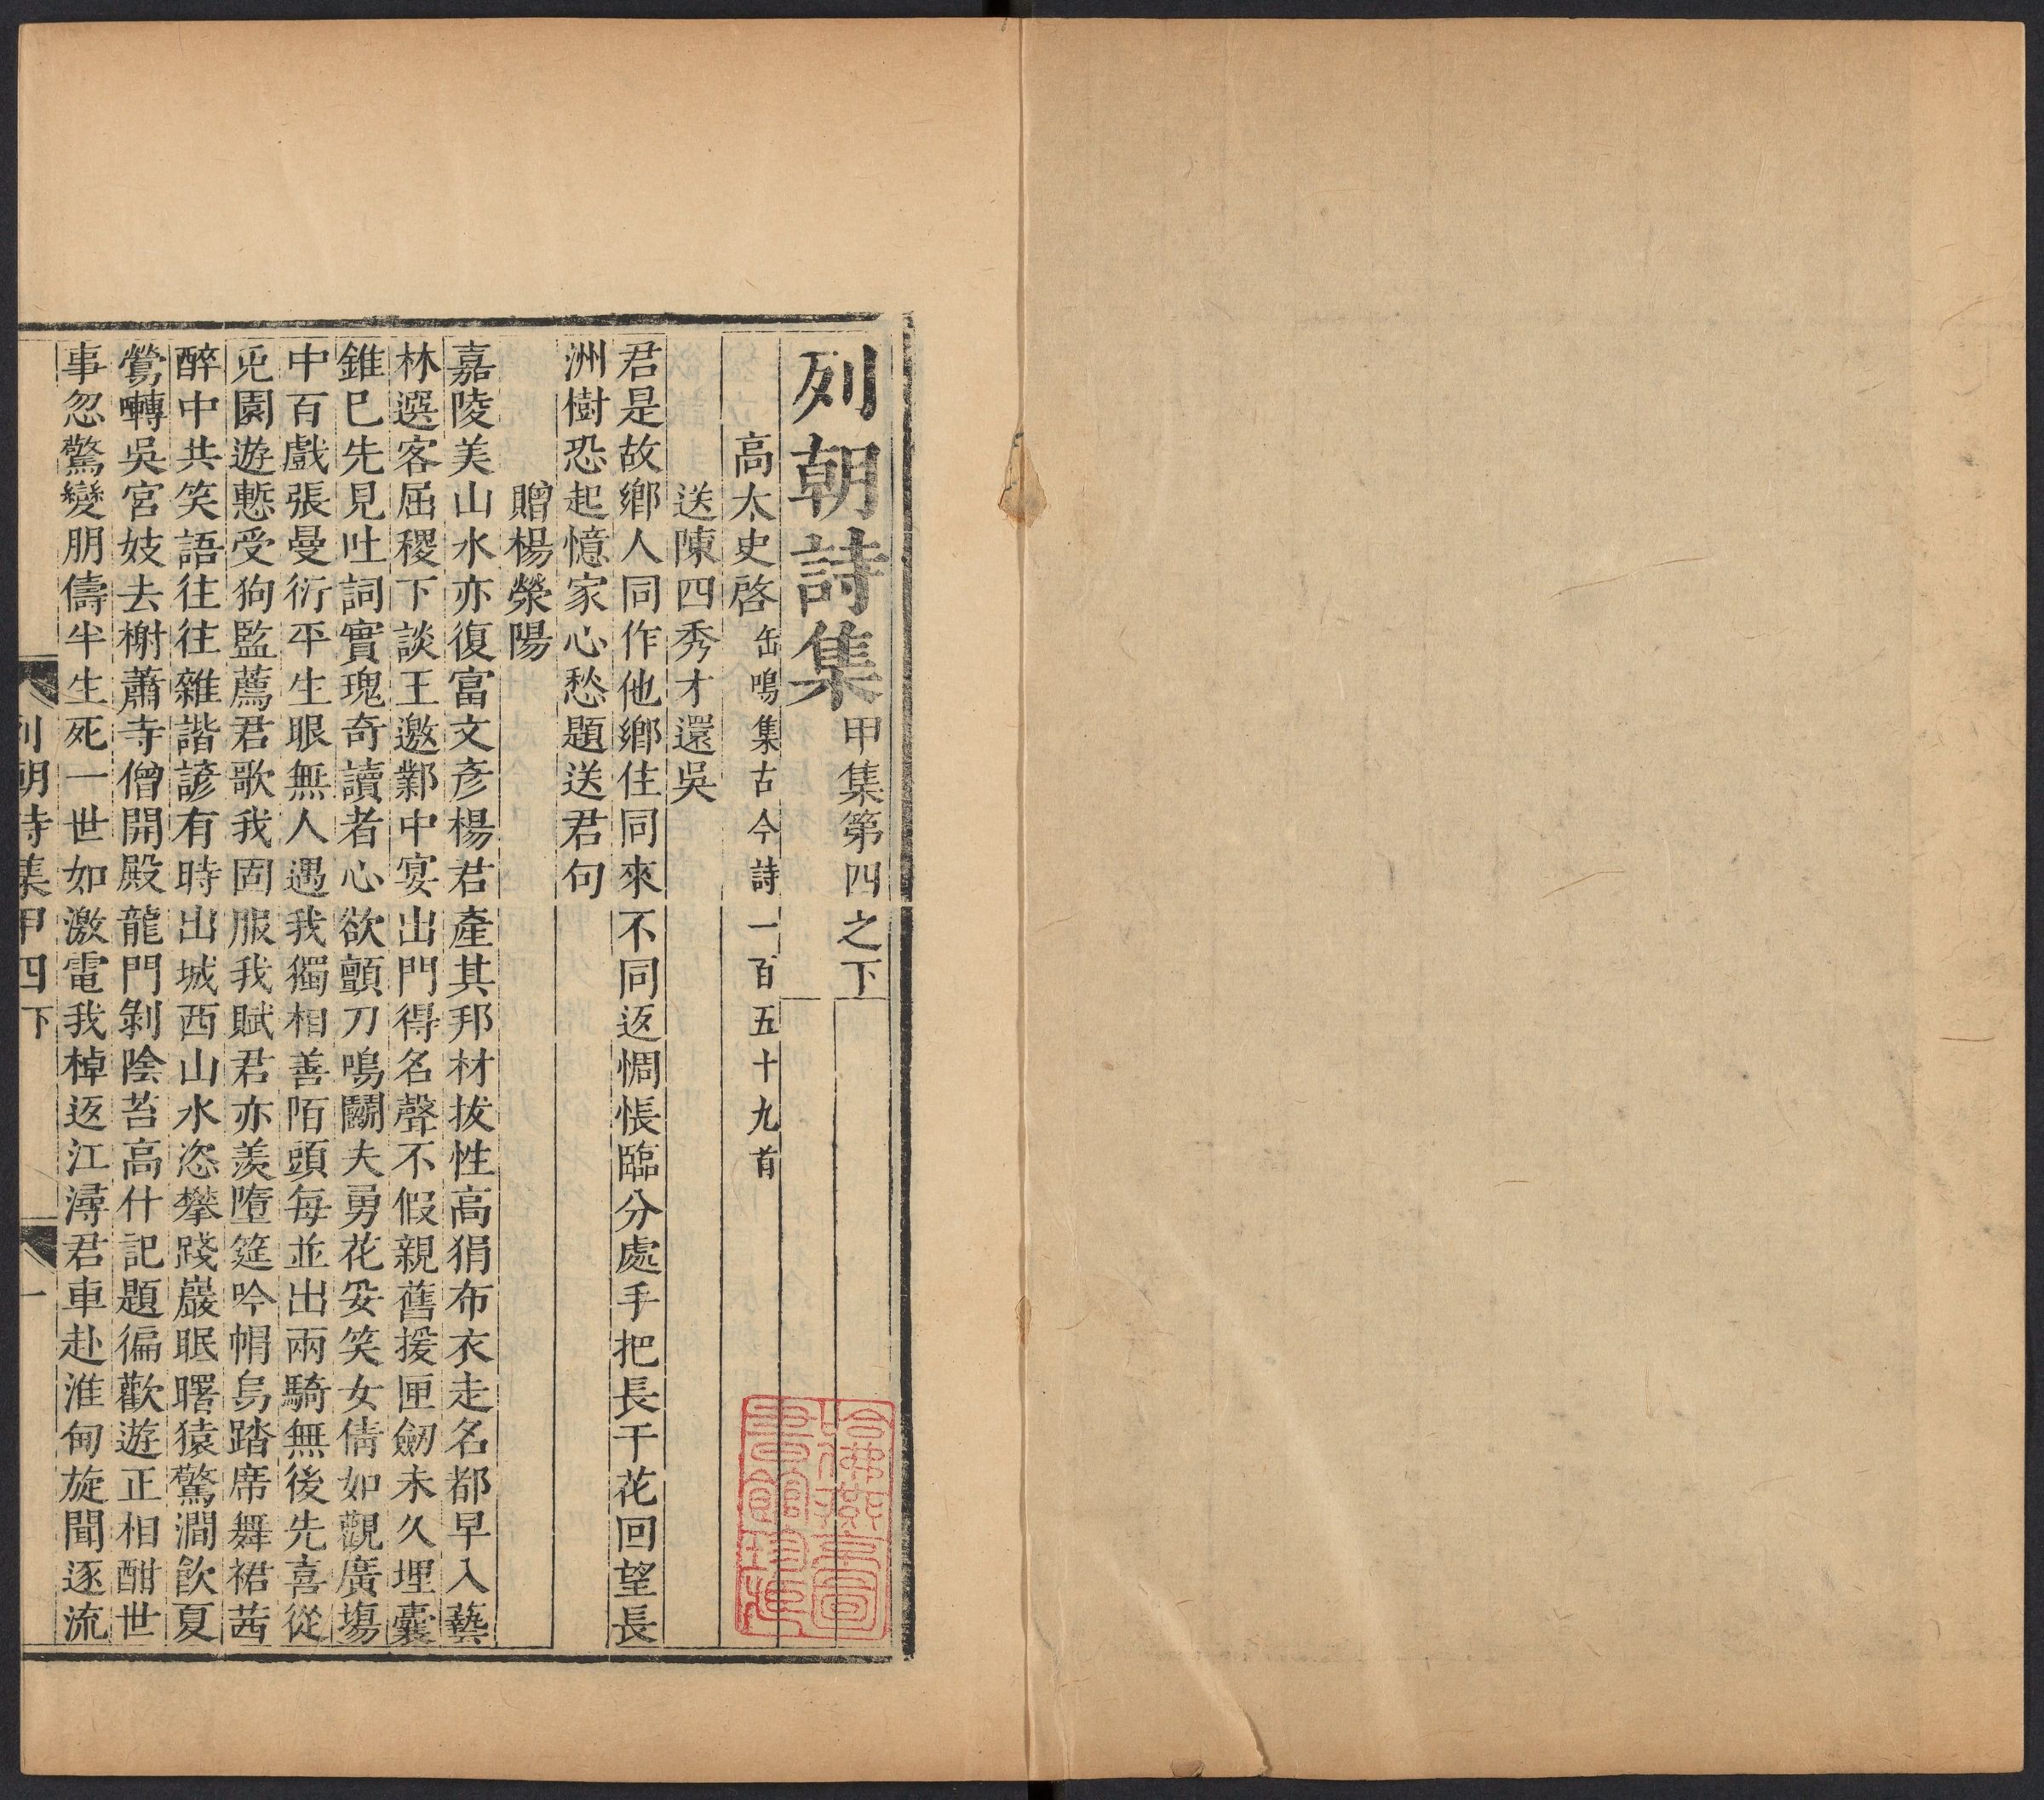 列朝詩集甲集第四之下
高太史啓缶鳴集古今詩一百五十九首
送陳四秀才還吳
君是故鄉人同作他鄉住同來不同返惆悵臨分處手把長干花回望長
洲樹恐起憶家心愁題送君句
贈楊滎陽
嘉陵美山水亦復富文彥楊君產其邦材拔性高狷布衣走名都早入藝
林選客屈稷下談王邀鄴中宴出門得名聲不假親舊援匣劒未久埋囊
錐巳先見吐詞實瑰奇讀者心欲顫刀鳴鬬夫勇花妥笑女倩如觀廣場
中百戲張曼衍平生眼無人遇我獨相善陌頭每並出兩騎無後先喜從
兎園遊慙受狗監薦君歌我固服我賦君亦羨墮筵吟帽烏踏席舞裙茜
醉中共笑語往往雜諧諺有時出城西山水恣攀踐巖眠曙猿驚澗飮夏
鶯囀吳宮妓去榭蕭寺僧開殿龍門剝陰苔高什記題徧歡遊正相酣世
事忽驚變朋儔半生死一世如激電我棹返江潯君車赴淮甸旋聞逐流
列朝詩集甲四下 一
哈佛燕京圖書館珍藏